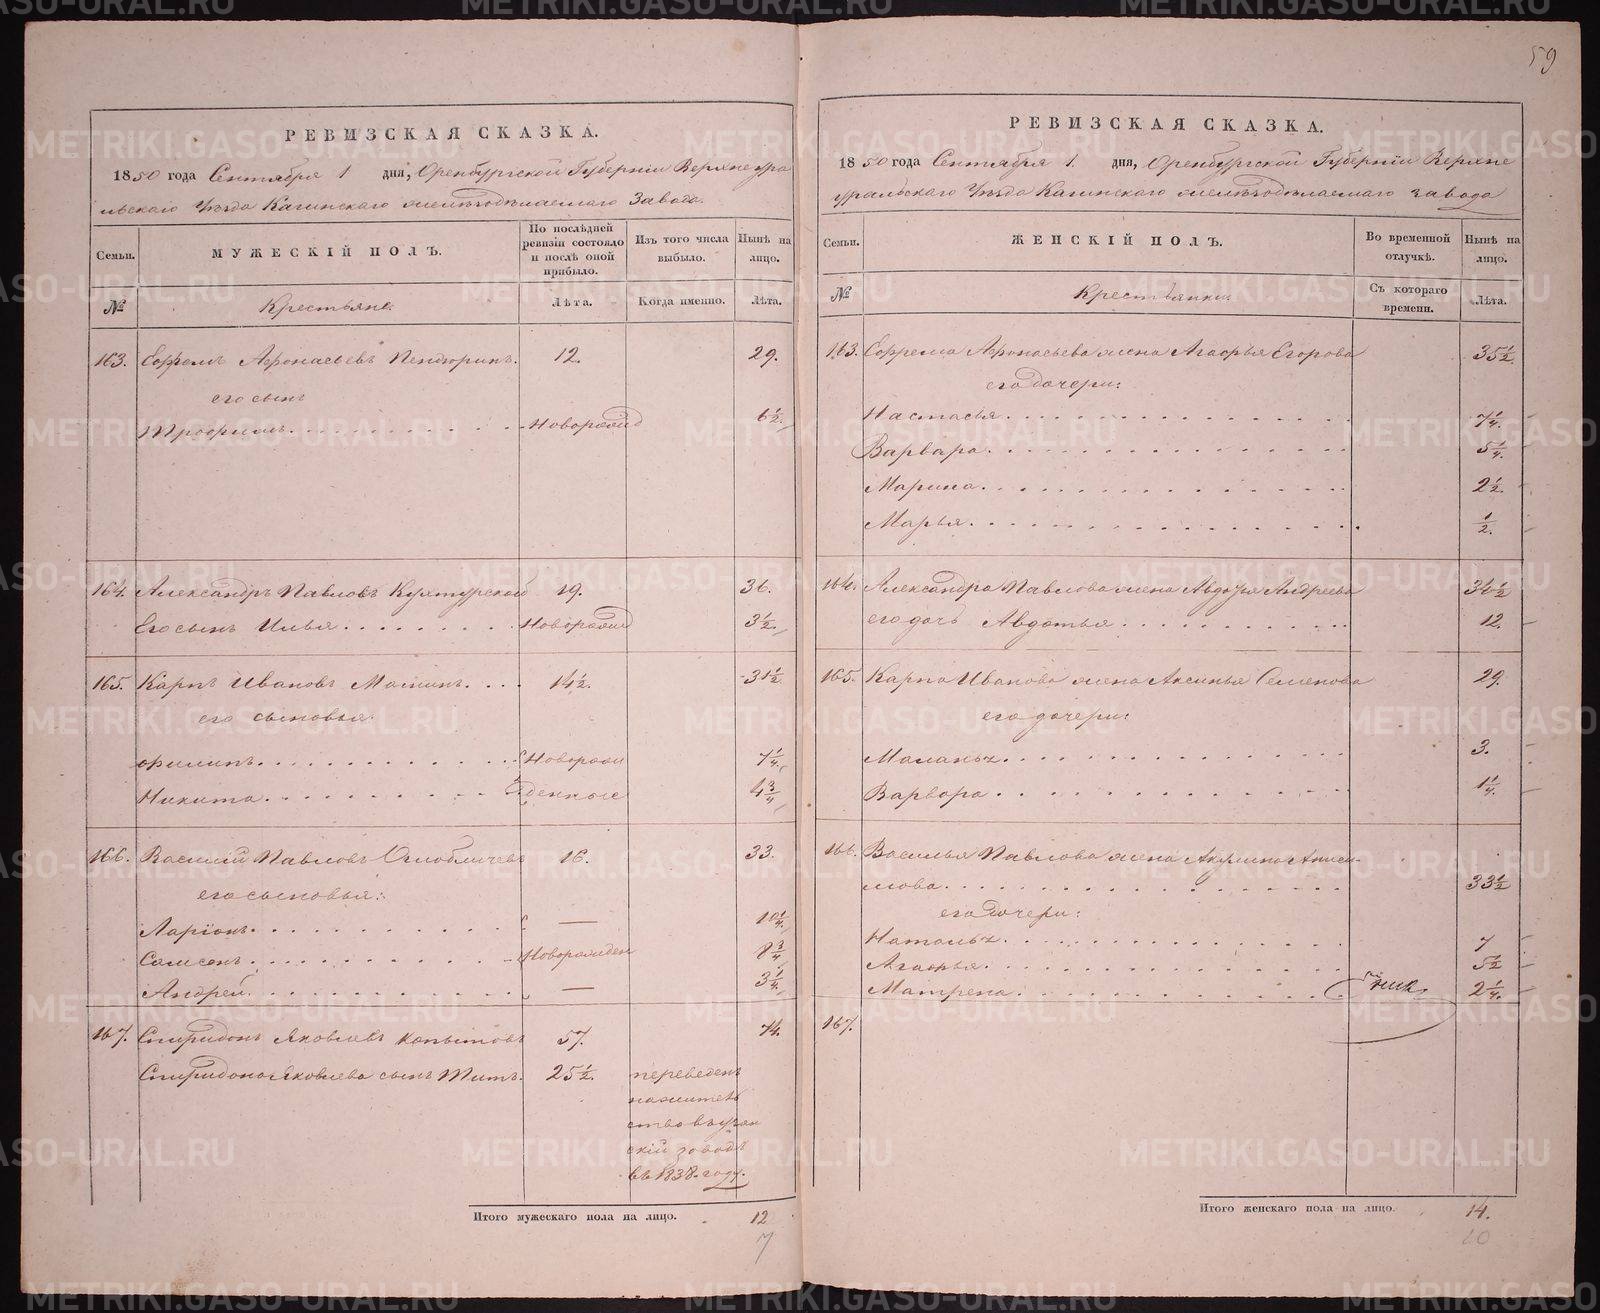 59
РЕВИЗСКАЯ СКАЗКА.
1850 года Сентября 1 дня, Оренбургской Губерніи Верхнеура
льскаго Уѣзда Кагинскаго желѣзодѣлаемаго Завода.
Семьи.
МУЖЕСКІЙ ПОЛЪ.
По послѣдней
ревизіи состояло
и послѣ оной
прибыло.
Изъ того числа
выбыло.
Нынѣ на
лицо.
№
Крестьяне.
Лѣта.
Когда именно.
Лѣта.
163. Ефремъ Афонасьевъ 12. 29.
его сынъ
Трофимъ. Новорожд 6½.
164. Александръ Павловъ 19. 36.
Его сынъ Илья Новорожд 3½.
165. Карпъ Ивановъ 14½. 31½.
его сыновья:
Филипъ. Новорож 7¼.
Никита денные 4¾
166. Василій Павловъ 16. 33.
его сыновья:
Ларіонъ. — 10¼.
Самсонъ. Новорожден 8¾
Андрей. — 3¼.
167. Спиридонъ Яковлевъ Копытовъ 57. 74.
Спиридона Яковлева сынъ Титъ. 25½. переведенъ
нажитель
ство въ узян
скій заводъ
въ 1838. году.
Итого мужескаго пола на лицо. 12
7
РЕВИЗСКАЯ СКАЗКА.
1850 года Сентября 1. дня, Оренбургской Губерніи Верхне
уральскаго Уѣзда Кагинскаго желѣзодѣлаемаго завода
Семьи.
ЖЕНСКІЙ ПОЛЪ.
Во временной
отлучкѣ.
Нынѣ на
лицо.
№
Крестьянки.
Съ котораго
времени.
Лѣта.
163. Ефрема Афонасьева жена Агафья Егорова 35½.
его дочери:
Настасья. 7¼.
Варвара. 5¼.
Марина. 2½.
Марья. ½.
164. Александра Павлова жена Авдотья Андреева 36½
его дочь Авдотья 12.
165. Карпа Иванова жена Аксинья Семенова 29.
его дочери:
Маланья. 3.
Варвора 1¼.
166. Василья Павлова жена Акулина Аниси-
мова. 33½
его дочери:
Наталья. 7
Агафья. 5½
Матрена. 2¼.
167.
Итого женскаго пола на лицо. 14.
10
METRIKI.GASO-URAL.RU